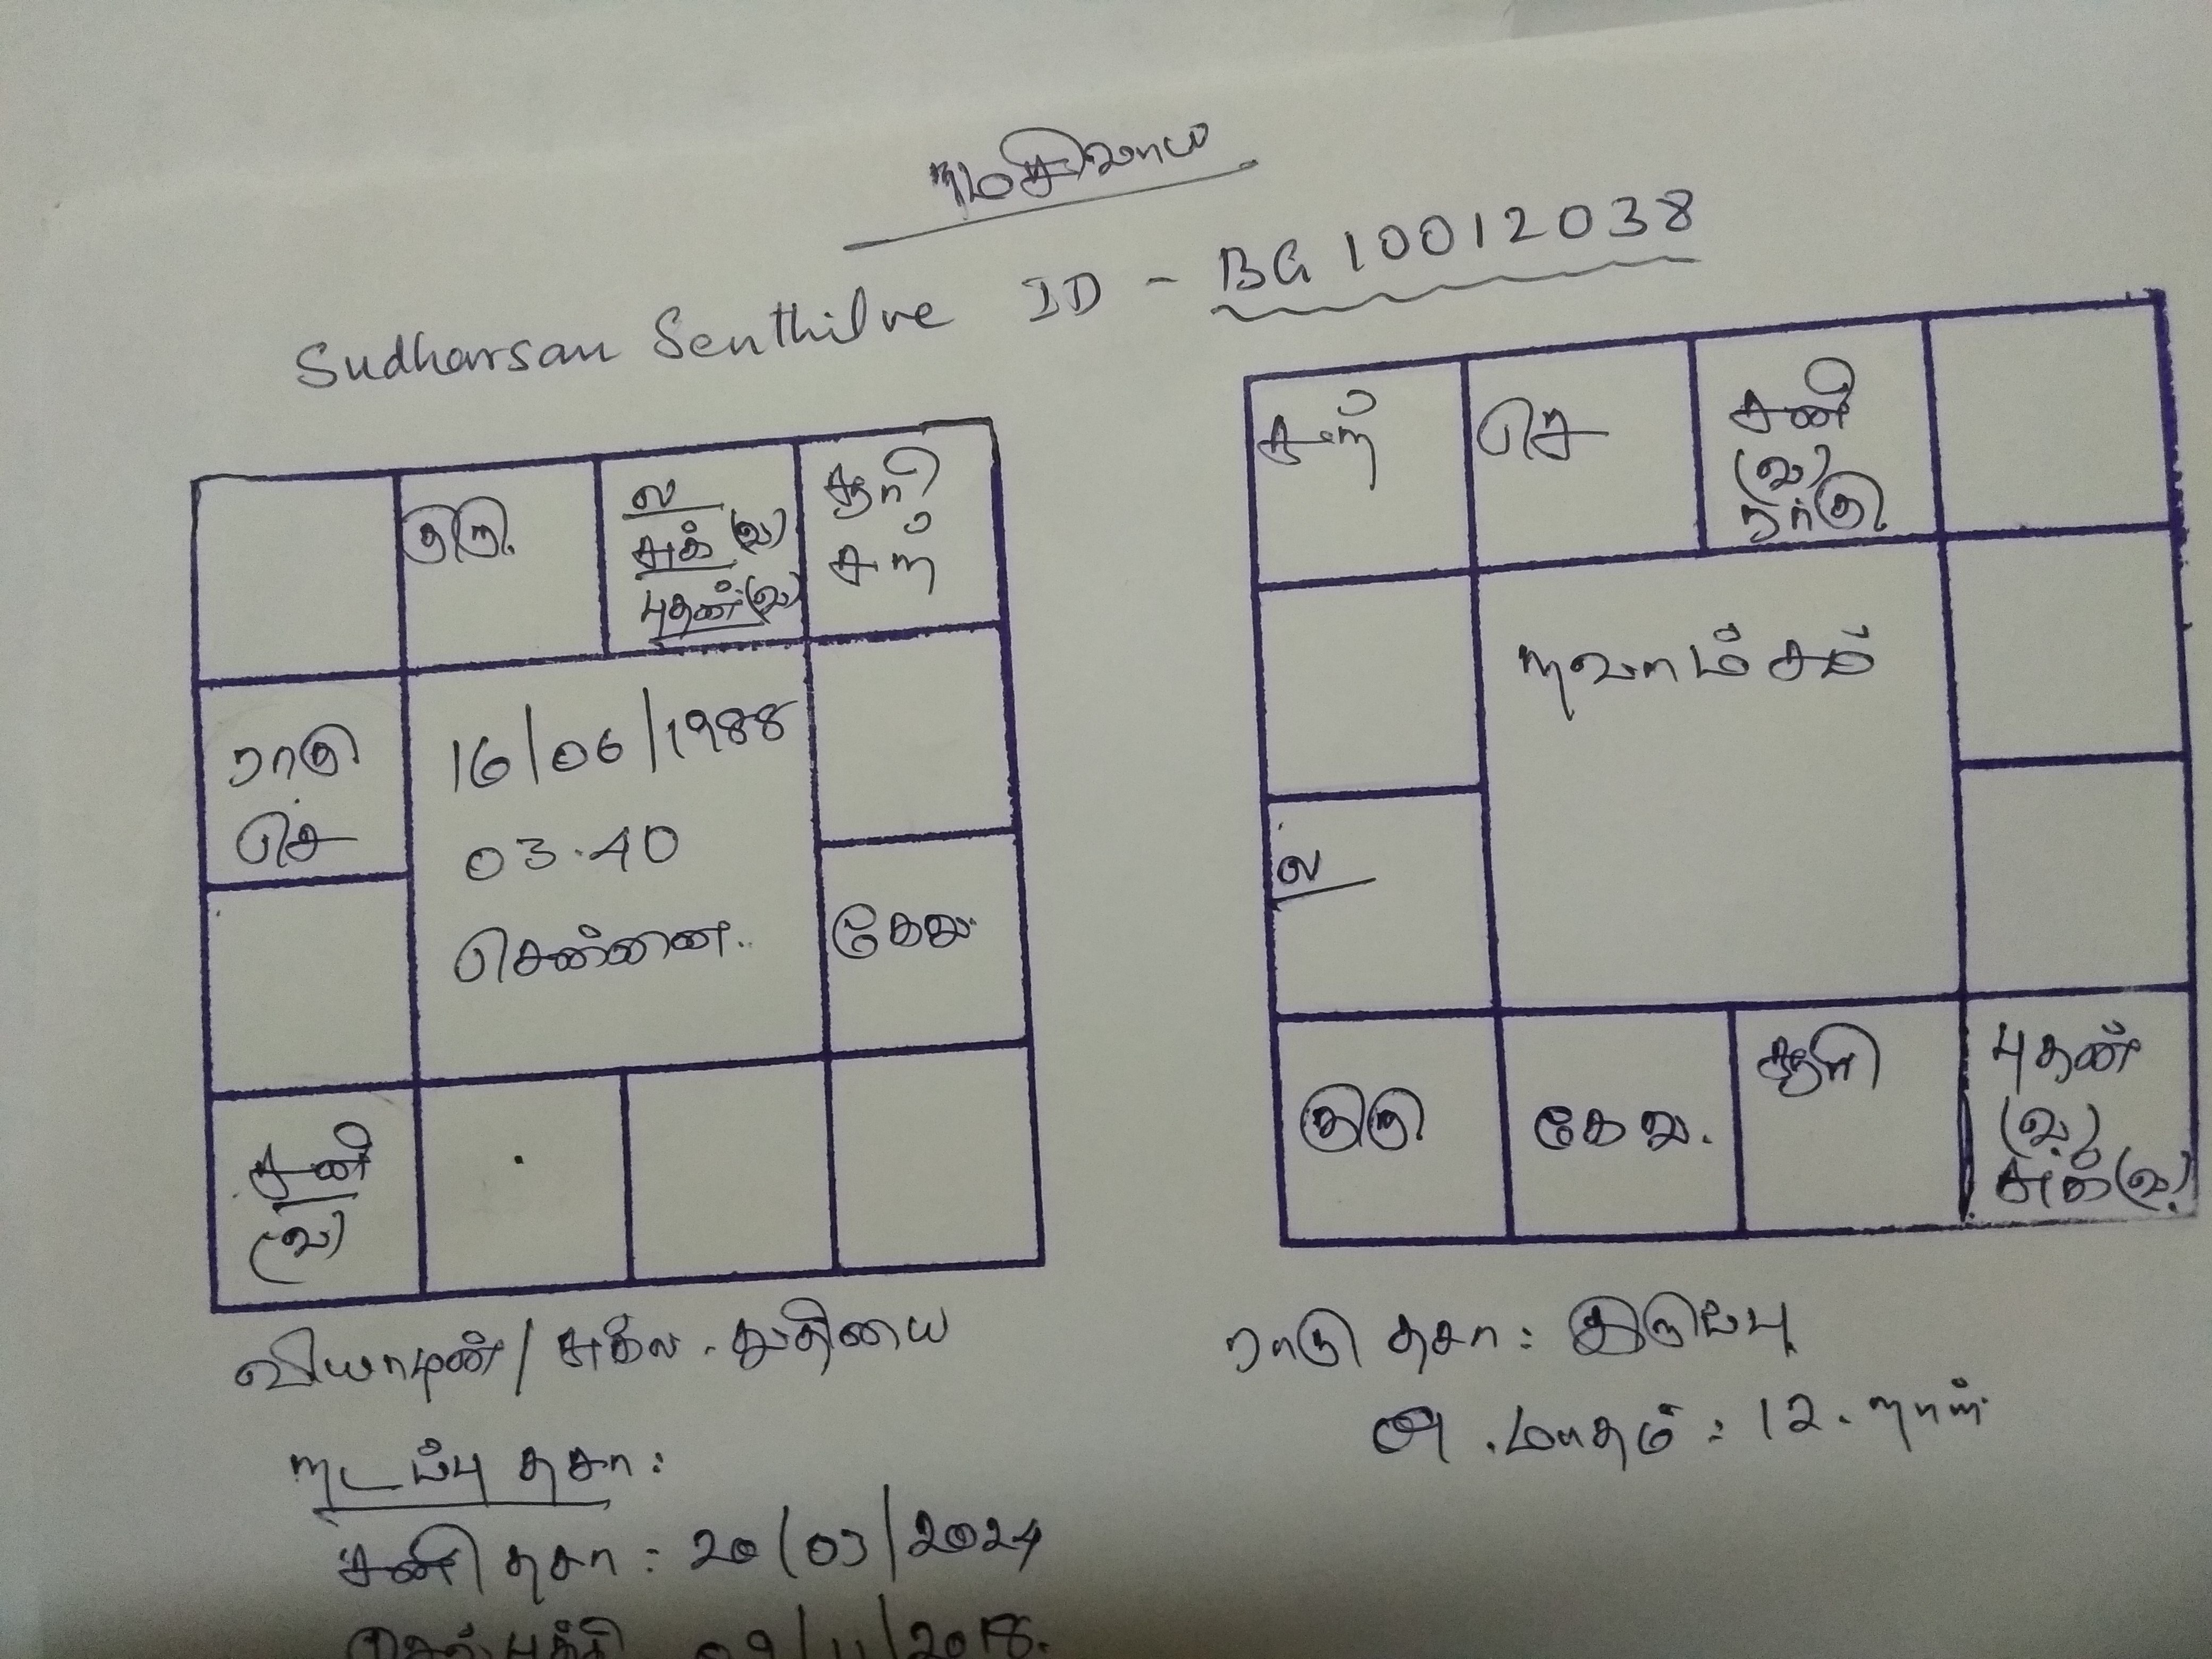 நமசிவாய
Sudharsan Senthilve ID - BG 10012038
குரு
ல
சுக் (வ)
புதன் (வ)
சூரி
சந்
ராகு
செ
16/06/1988
03.40
சென்னை.
கேது
சனி
(வ)
சந்
செ
சனி
(வ)
ராகு
நவாம்சம்
ல
குரு
கேது.
சூரி
புதன்
(வ)
சுக் (வ)
வியாழன் / சுக்ல. துதியை
ராகு தசா : இருப்பு
மாதம் : 12. நாள்
நடப்பு தசா :
சனி தசா : 20/03/2024
09/11/2018.